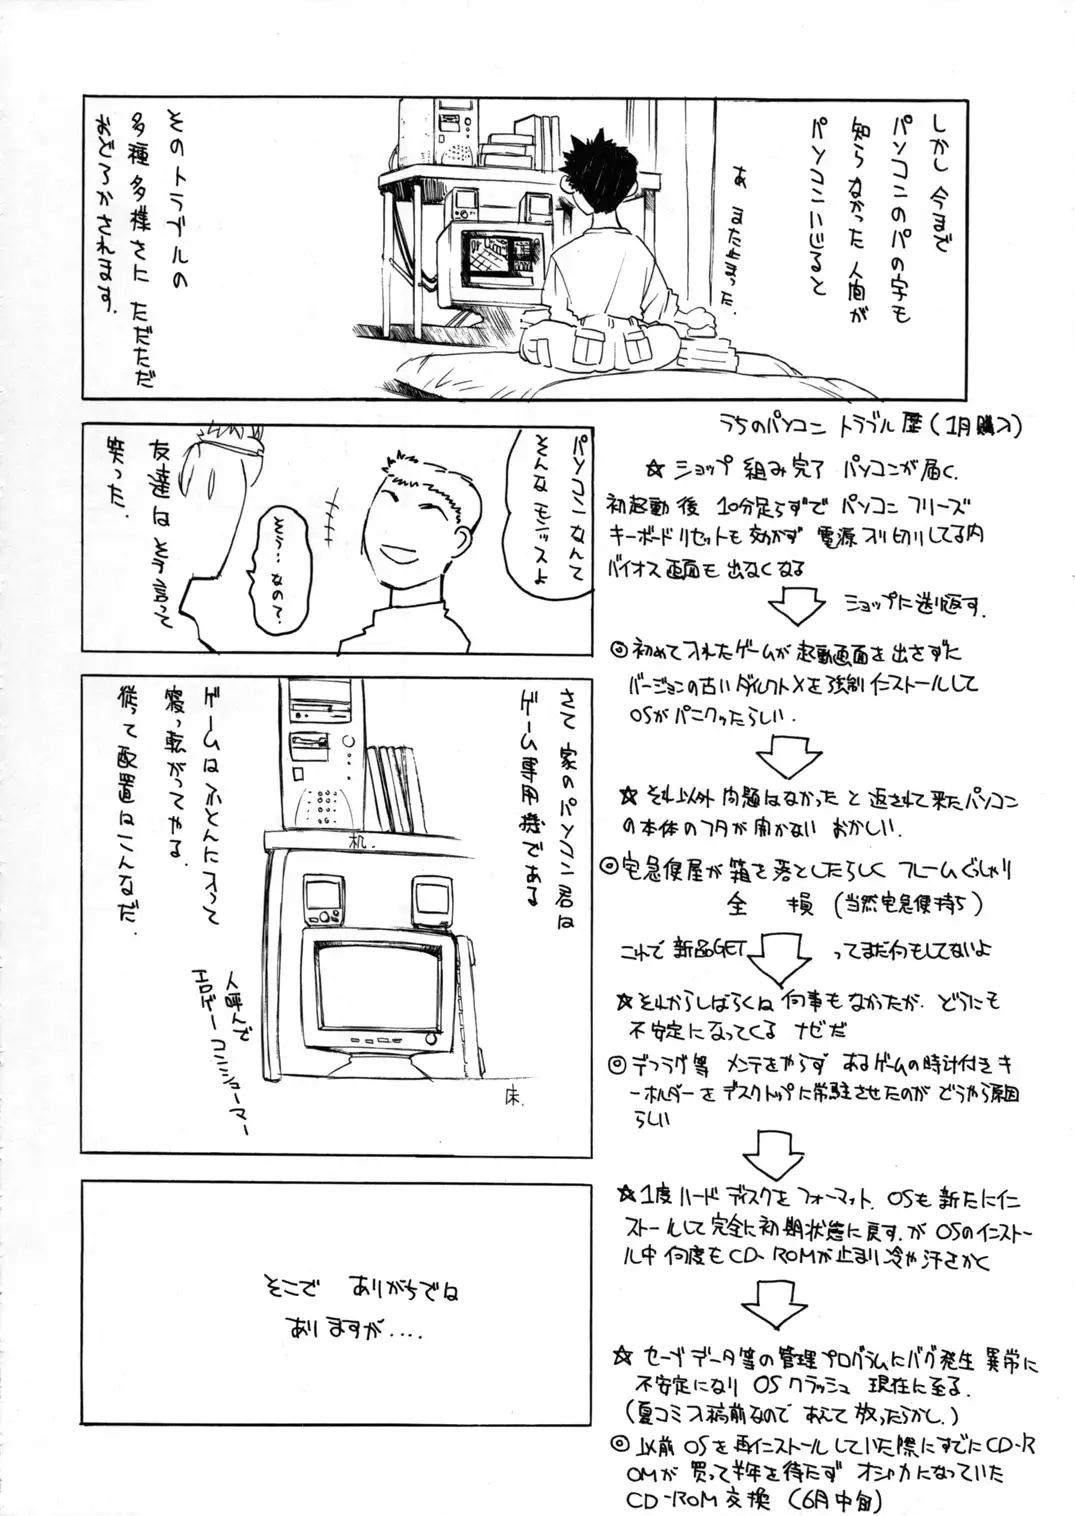 しかし 今まで
パソコンのパの字も
知らなかった 人間が
パソコンいじると
あ また止まった.
そのトラブルの
多種多様さに ただただ
おどろかされます.
パソコンなんて
そんなモンッスよ
そう…なの?.
友達は そう言って
笑った.
さて 家のパソコン君は
ゲーム専用機である
机.
ゲームはふとんに入って
寝っ転がってやる.
従って配置はこんなだ.
人呼んで
エロゲーコンショーマー
床.
そこで ありがちでは
ありますが....
うちのパソコン トラブル歴(1月購入)
☆ショップ組み完了 パソコンが届く.
初起動後 10分足らずで パソコン フリーズ
キーボードリセットも効かず 電源入り切りしてる内
バイオス画面も 出なくなる
ショップに送り返す.
◎初めて入れたゲームが 起動画面を出さずに
バージョンの古いダイレクトXを強制インストールして
OSがパニクッたらしい.
☆それ以外 問題はなかった と 返されて来たパソコン
の本体のフタが 開かない おかしい.
◎宅急便屋が 箱を落としたらしく フレームぐしゃり
全 損 (当然宅急便持ち)
これで 新品GET ってまだ何もしてないよ
☆それからしばらくは 何事もなかったが. どうにも
不安定になってくる ナゼだ
◎デフラグ等 メンテをやらず あるゲームの時計付きキ
ーホルダーをデスクトップに常駐させたのが どうやら原因
らしい
☆1度ハードディスクをフォーマット. OSも 新たにイン
ストールして完全に初期状態に戻す.が OSのインストー
ル中 何度もCD-ROMが止まり冷や汗さかく
☆ セーブデータ等の管理プログラムにバグ発生 異常に
不安定になり OSクラッシュ 現在に至る.
(夏コミ入稿前なので あえて放ったらかし.)
◎以前 OSを再インストールしていた際にすでにCD-R
OMが 買って半年を待たず オシャカになっていた
CD-ROM交換 (6月中旬)